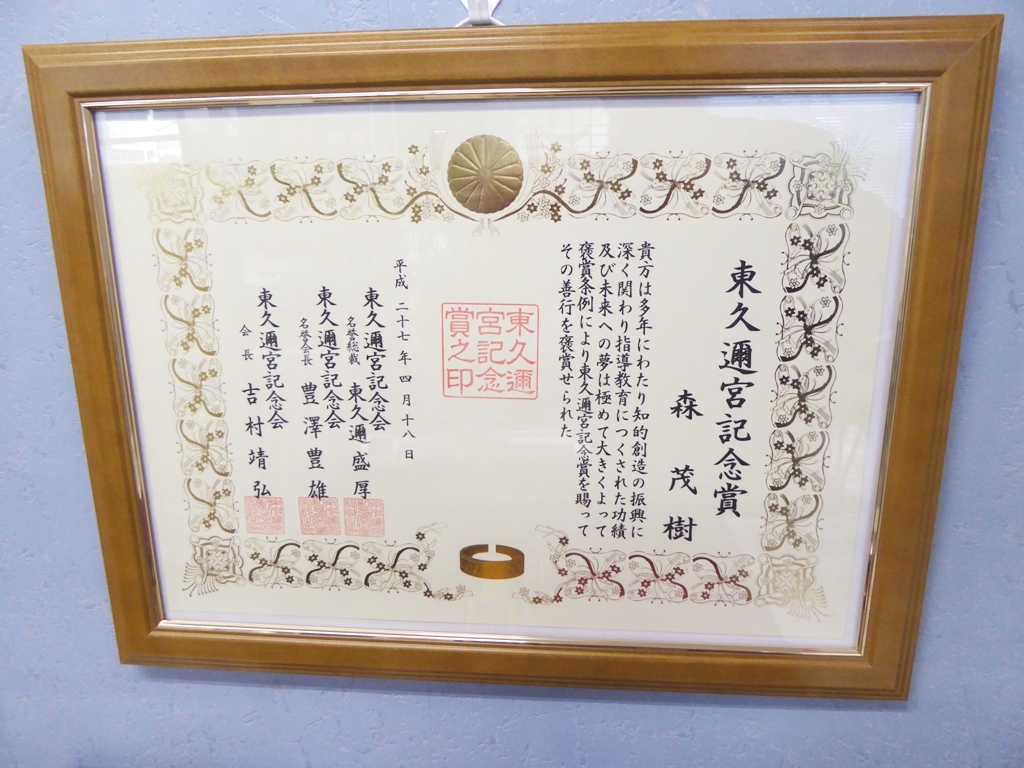 東久邇宮記念賞
森茂樹
貴方は多年にわたり知的創造の振興に
深く関わり指導教育につくされた功績
及び未来への夢は極めて大きくよって
褒賞条例により東久邇宮記念賞を賜って
その善行を褒賞せられた
東久邇
宮記念
賞之印
平成二十七年四月十八日
東久邇宮記念会
名誉総裁 東久邇盛厚
東久邇宮記念会
名誉会長 豊澤豊雄
東久邇宮記念会
会長 吉村靖弘